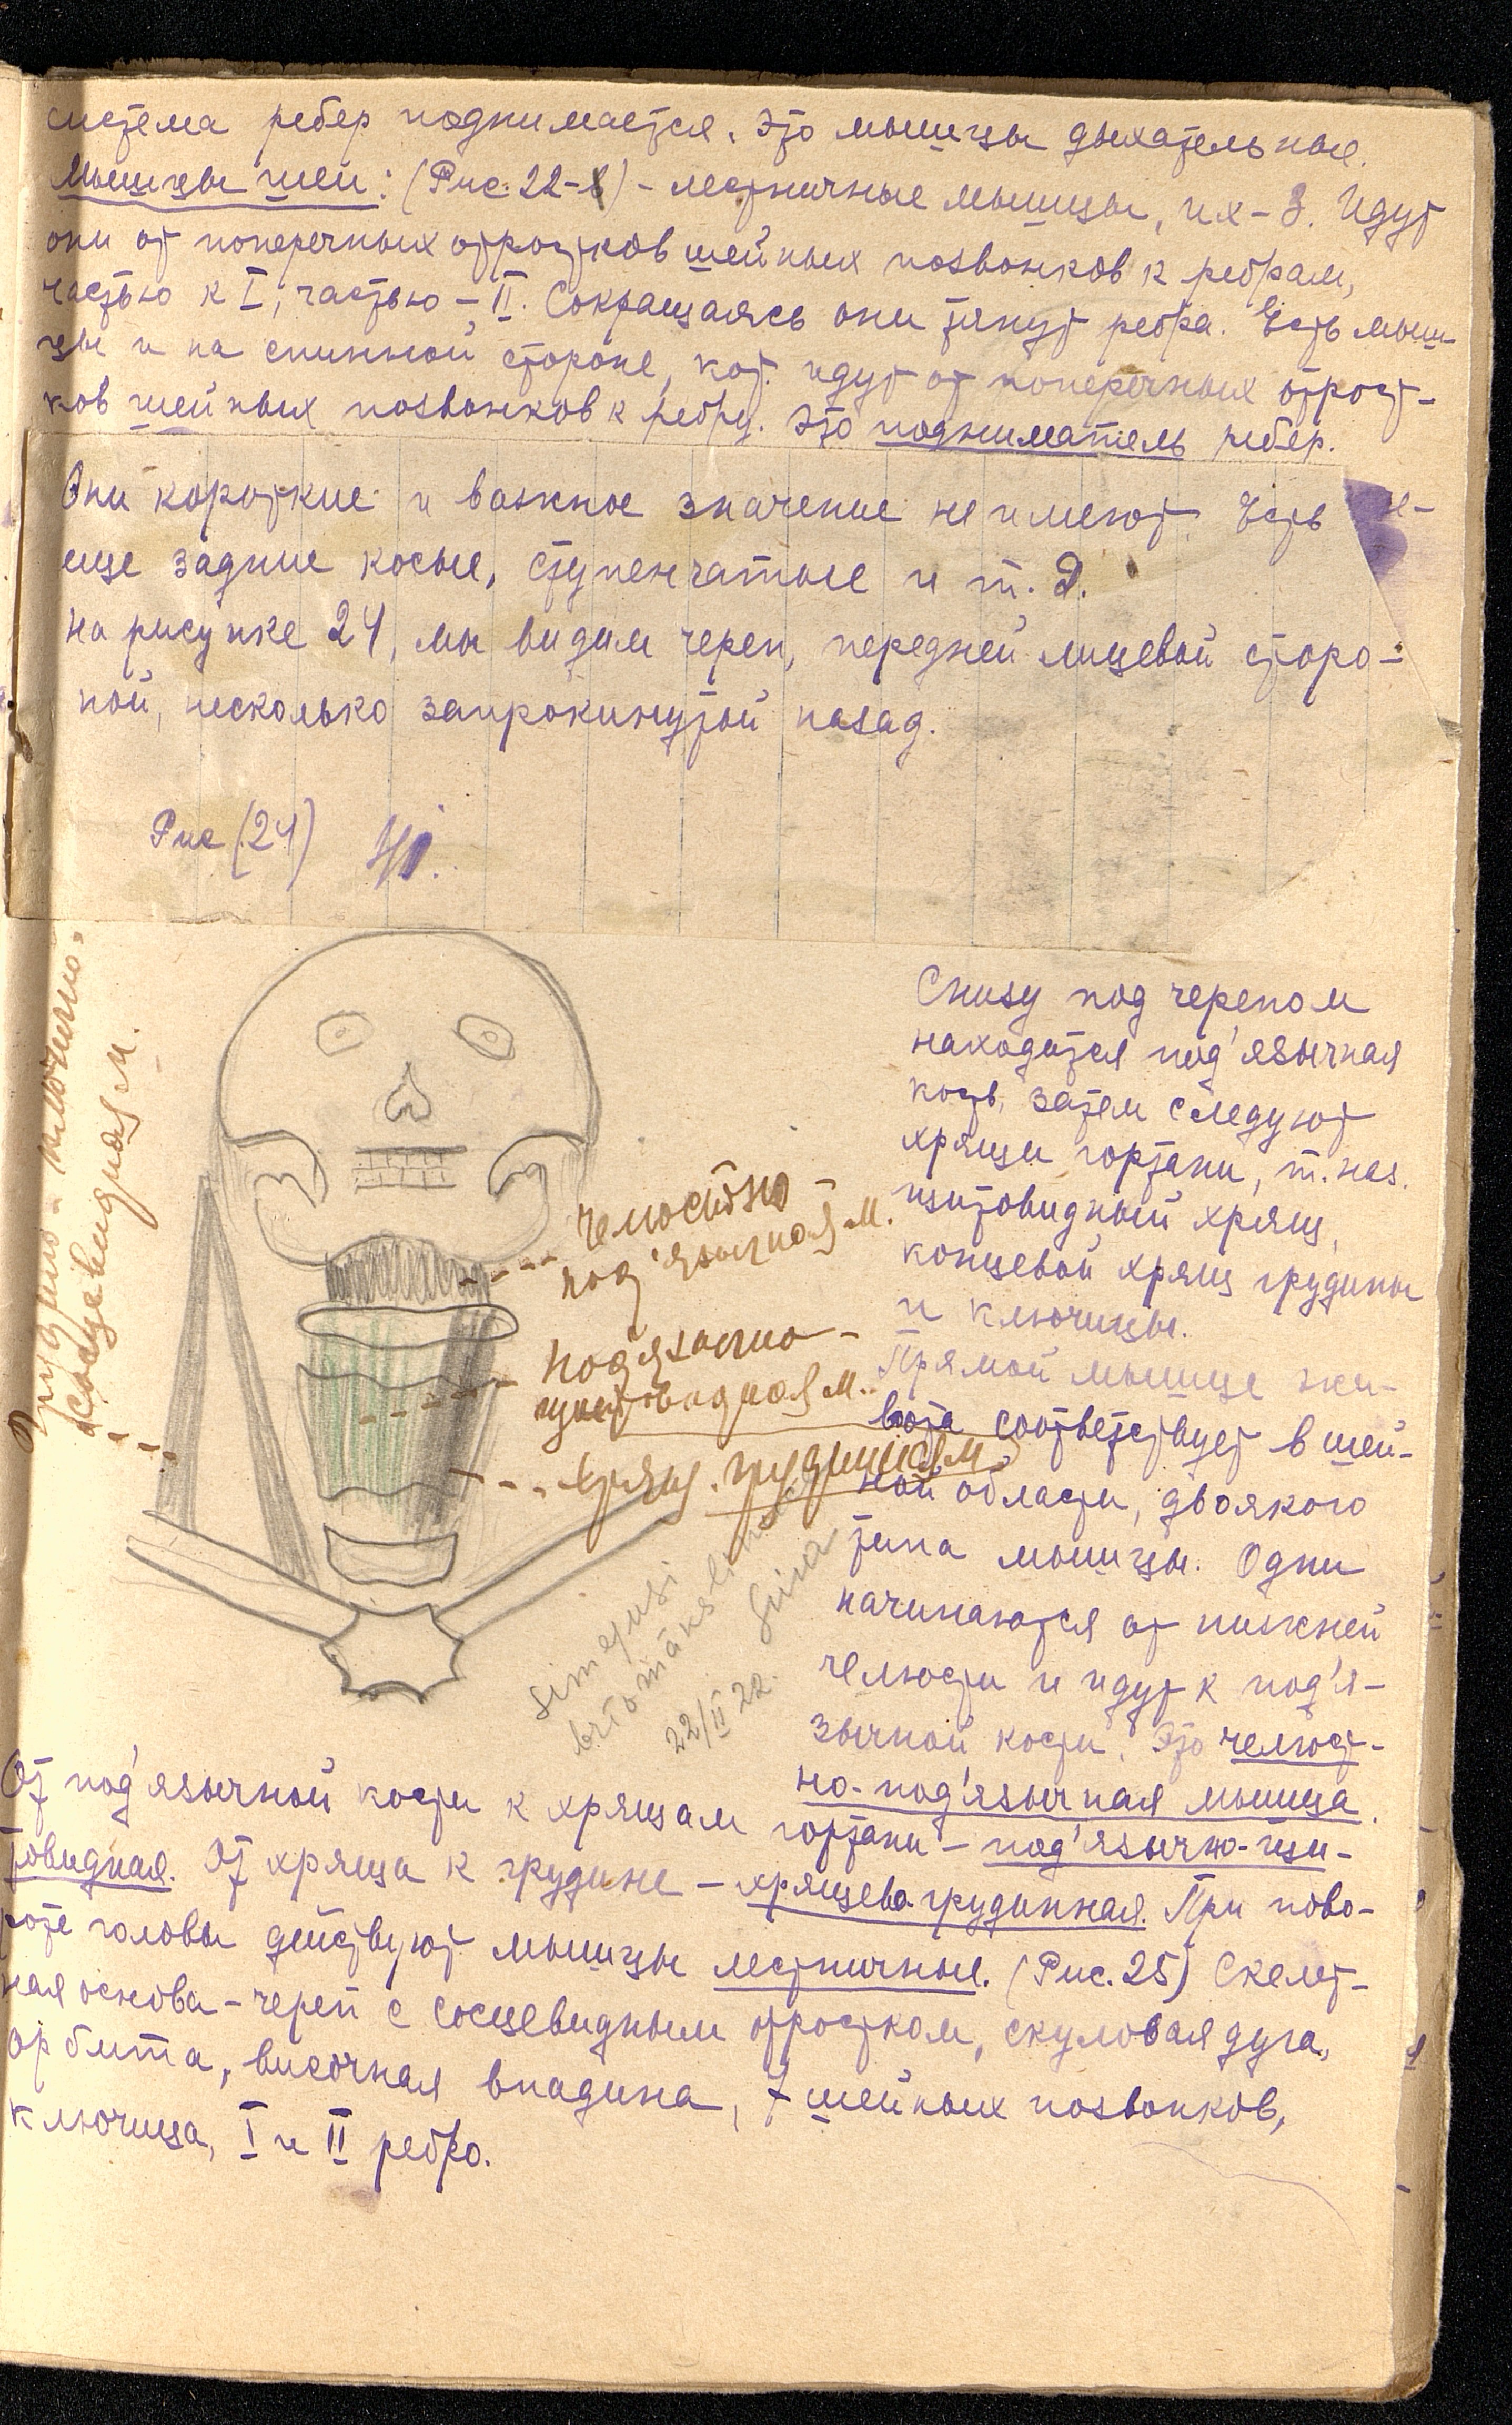 система ребер поднимается. Это мышцы дыхательные.
Мышцы шеи: (Рис. 22-) - лестничные мышцы, их - 3. Идут
они от поперечных отростков шейных позвонков к ребрам,
частью к I, частью - II. Сокращаясь они тянут ребра. Есть мыш-
цы и на спинной стороне, кот. идут от поперечных отрост-
ков шейных позвонков к ребру. Это подниматель ребер.
Они короткие и важное значение не имеют. Есть
еще задние косые, ступенчатые и т. д.
На рисунке 24, мы видим череп, передней лицевой сторо-
ной, несколько запрокинутой назад.
Рис (24)
Грудино-ключично-
сосцевидная м.
челюстно-
под'язычная м.
Под'язычно-
щитовидная м.
хрящ. грудинная м.
Снизу под черепом
находится под'язычная
кость, затем следуют
хрящи гортани, т. наз.
щитовидный хрящ,
концевой хрящ грудины
и ключицы.
Прямой мышце жи-
вота соответствует в шей-
ной области, двоякого
типа мышцы. Одни
начинаются от нижней
челюсти и идут к под'я-
зычной кости. Это челюст-
но-под'язычная мышца.
22/II 22.
От под'язычной кости к хрящам гортани - под'язычно-щи-
товидная. От хряща к грудине - хрящева грудинная. При пово-
роте головы действуют мышцы лестничные. (Рис. 25) Скелет-
ная основа - череп с сосцевидным отростком, скуловая дуга,
орбита, височная впадина, 7 шейных позвонков,
ключица, I и II ребро.